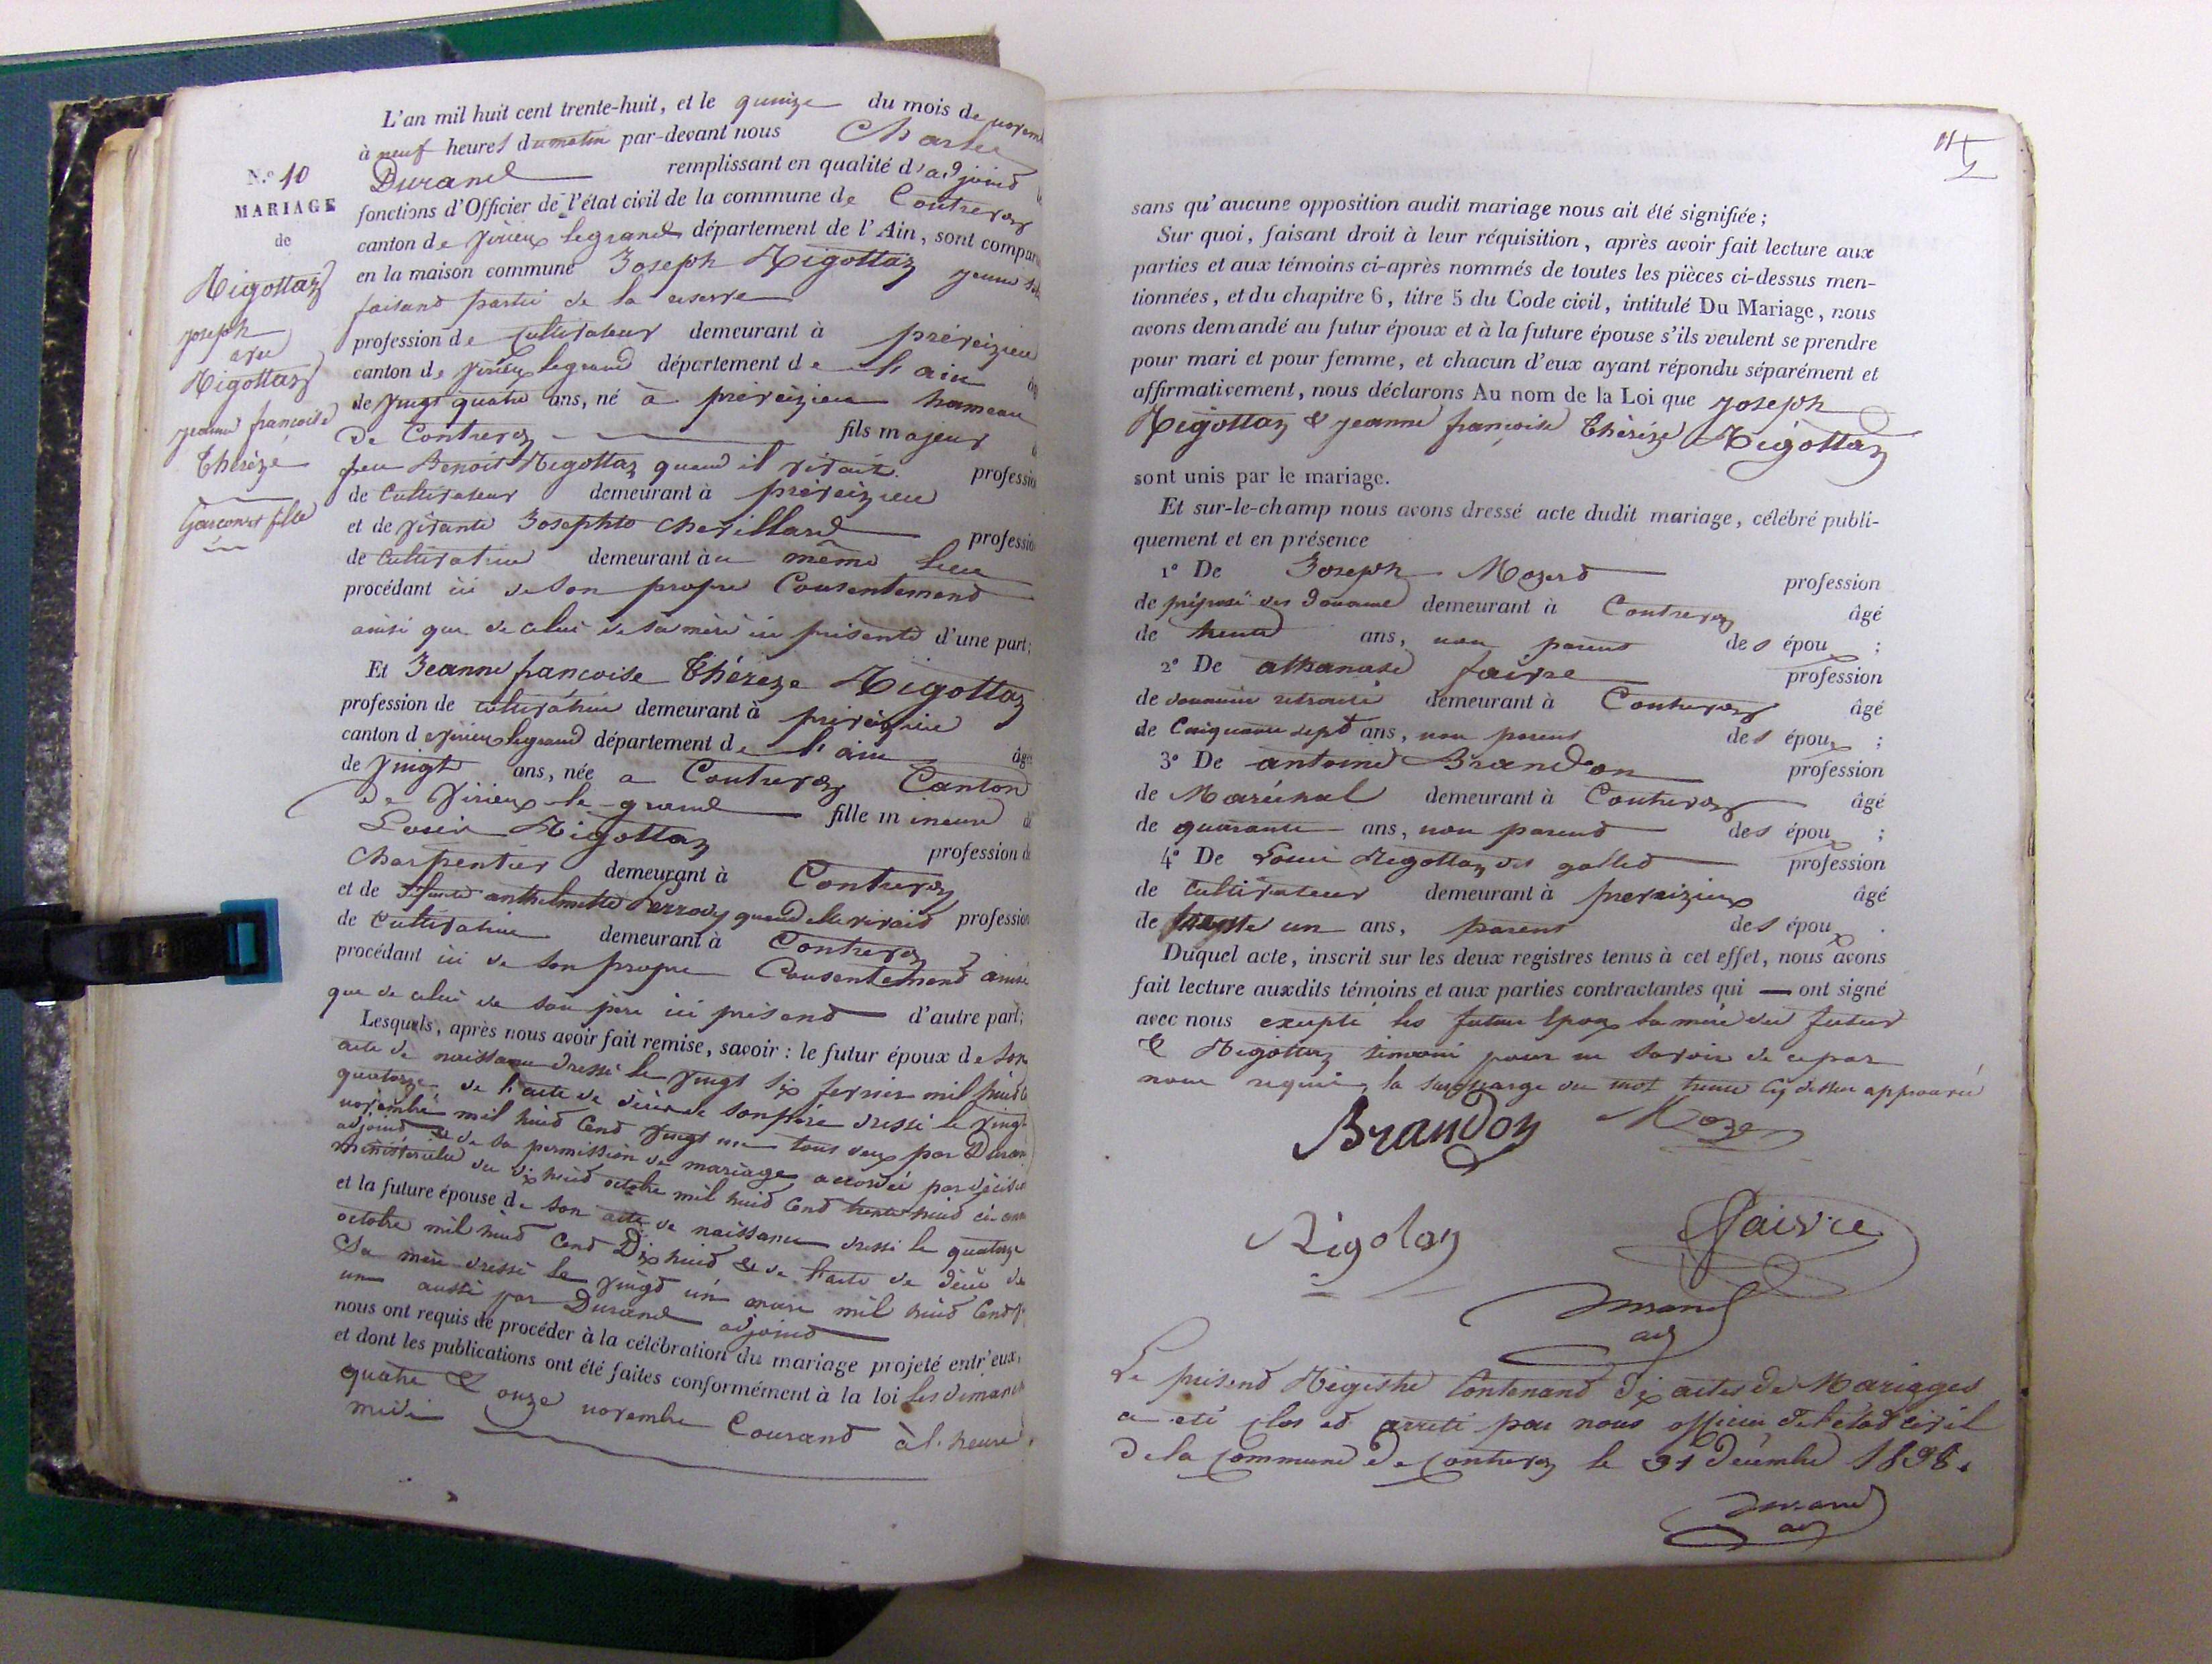 N.° 10
MARIAGE
de
Rigottaz
joseph
avec
Rigottaz
jeanne francoise
Thérèze
Garcon et fille
L'an mil huit cent trente-huit, et le quinze du mois de novem
à neuf heures du matin par-devant nous Charles
Durand remplissant en qualité d'adjoind
fonctions d'Officier de l'état civil de la commune de Contrevoz
canton de virieux legrand département de l'Ain, sont compar
en la maison commune Joseph Rigottaz jeune
faisand partie de la reserve
profession de Cultivateur demeurant à préveizieu
canton de virieux legrand département de l'ain
de vingt quatre ans, né à préveizieu hameau
de Contrevoz fils majeur
feu Benoit Rigottaz quand il vivait professio
de Cultivateur demeurant à préveizieu
et de vivante Josephte chevillard professio
de Cultivatrice demeurant au même lieu
procédant ici de son propre Consentemend
ainsi que de celui de sa mère ici présente d'une part;
Et Jeanne francoise Thérèze Rigottaz
profession de cultivatrice demeurant à préveizieu
canton de virieux legrand département de l'ain âgé
de vingt ans, née a Contrevoz Canton
de Virieux-le-grand fille mineure de
Louis Rigottaz profession de
charpentier demeurant à Contrevoz
et de défunte anthelmette Perrody quand elle vivait profession
de Cultivatrice demeurant à Contrevoz
procédant ici de son propre Consentemend ainsi
que de celui de son père ici présend d'autre part;
Lesquels, après nous avoir fait remise, savoir : le futur époux de son
acte de naissance dressé le vingt six fevrier mil huid
quatorze de l'acte de décès de son père dressé le vingt
novembre mil huid Cend vingt un tous deux par Duran
adjoind & de sa permission de mariage accordée par décisio
ministérielle du dix huid octobre mil huid Cend trente huid
et la future épouse de son acte de naissance dressé le quatorze
octobre mil huid Cend Dix huid & de l'acte de décès de
Sa mère dressé le vingt un mars mil huid Cend
un aussi par Durand adjoind
nous ont requis de procéder à la célébration du mariage projeté entr'eux,
et dont les publications ont été faites conformément à la loi les dimanch
quatre & onze novembre Courand à l'heure
midi
sans qu'aucune opposition audit mariage nous ait été signifiée ;
Sur quoi, faisant droit à leur réquisition, après avoir fait lecture aux
parties et aux témoins ci-après nommés de toutes les pièces ci-dessus men-
tionnées, et du chapitre 6, titre 5 du Code civil, intitulé Du Mariage, nous
avons demandé au futur époux et à la future épouse s'ils veulent se prendre
pour mari et pour femme, et chacun d'eux ayant répondu séparément et
affirmativement, nous déclarons Au nom de la Loi que joseph
Rigottaz & jeanne françoise Thérèze Rigottaz
sont unis par le mariage.
Et sur-le-champ nous avons dressé acte dudit mariage, célébré publi-
quement et en présence
1° De Joseph Mozerd profession
de préposé des Douanes demeurant à Contrevoz âgé
de trente ans, non parent des époux ;
2° De athanase faivre profession
de douanier retraité demeurant à Contrevoz âgé
de Cinquante sept ans, non parent des époux ;
3° De antoine Brandon profession
de Maréchal demeurant à Contrevoz âgé
de quarante ans, non parend des époux ;
4° De Louis Rigottaz dit profession
de Cultivateur demeurant à preveizieux âgé
de trente un ans, parent des époux.
Duquel acte, inscrit sur les deux registres tenus à cet effet, nous avons
fait lecture auxdits témoins et aux parties contractantes qui — ont signé
avec nous excepté les futurs Epoux la mère du futur
& Rigottaz témoin pour ne savoir de ce par
nous requis, la surcharge du mot trente cy dessu approuvé
Brandon Mozer
Rigotaz Faivre
Durand
adj
Le présend Régistre Contenand dix actes de Mariages
a été clos et arrété par nous officier de l'état civil
de la Commune de Contrevoz le 31 Décembre 1838.
Durand
adj